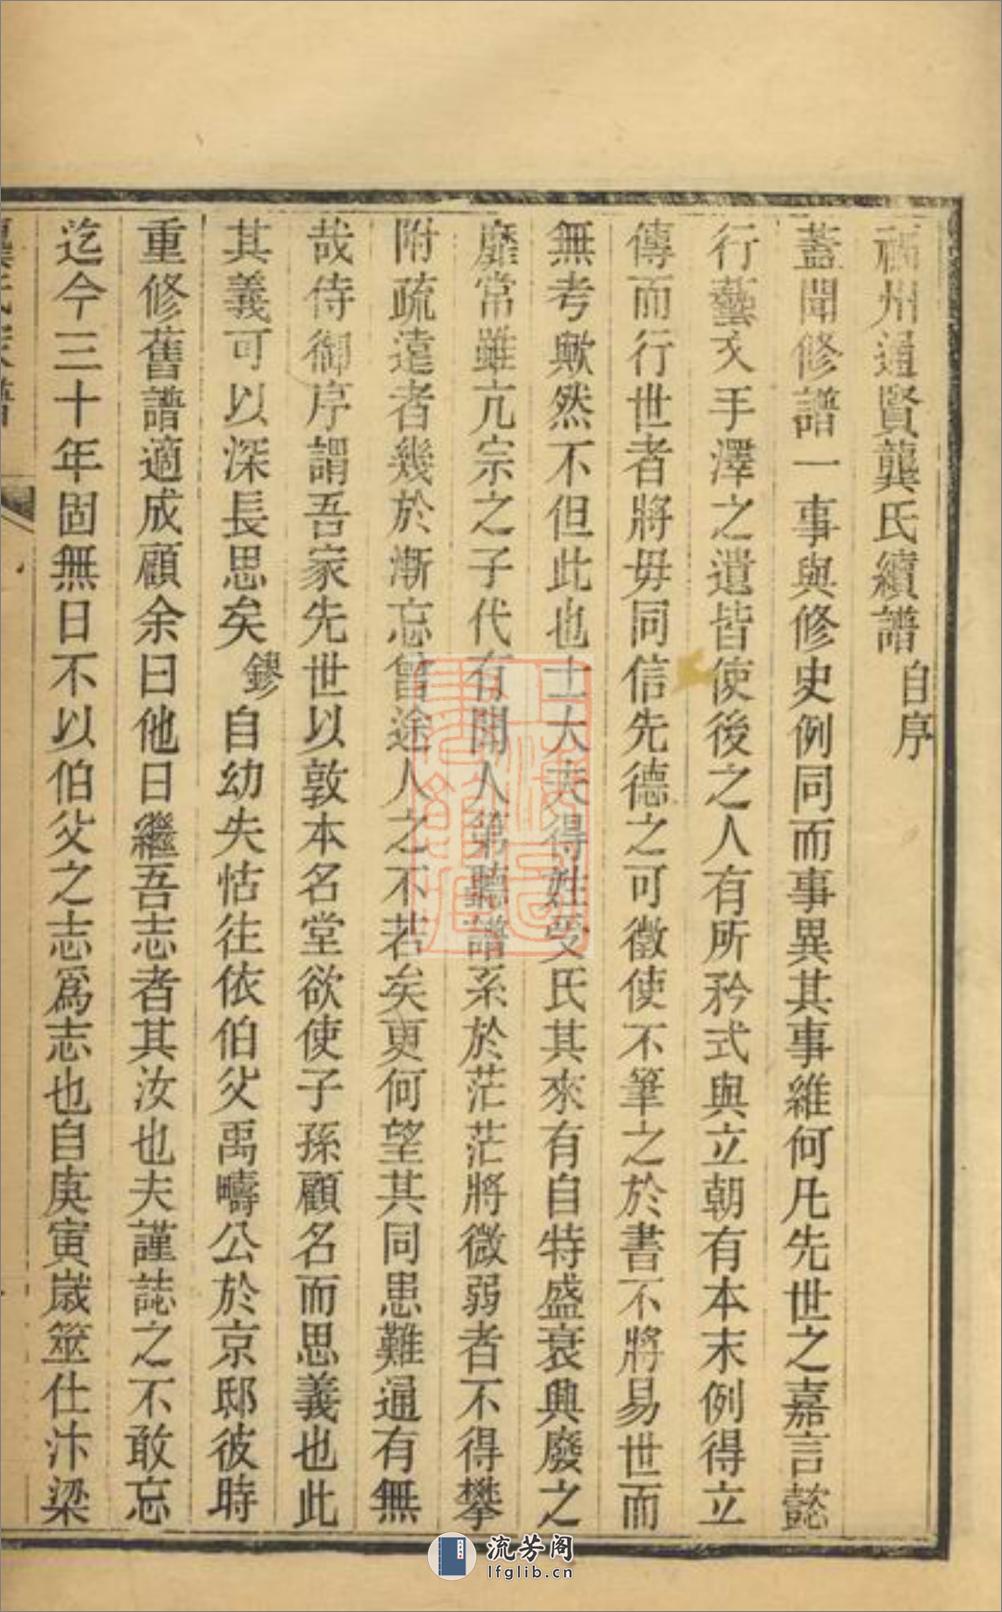 福州通賢龔氏續譜自序
蓋聞修譜一事與修史例同而事異其事維何凡先世之嘉言懿
行藝文手澤之遺皆使後之人有所矜式與立朝有本末例得立
傳而行世者將毋同信先德之可徵使不筆之於書不將易世而
無考歟然不但此也士大夫得姓受氏其來有自特盛衰興廢之
靡常雖亢宗之子代有聞人第聽譜系於茫茫將微弱者不得攀
附疏遠者幾於漸忘曾途人之不若矣更何望其同患難通有無
哉侍御序謂吾家先世以敦本名堂欲使子孫顧名而思義也此
其義可以深長思矣鏐自幼失怙往依伯父禹疇公於京邸彼時
重修舊譜適成顧余曰他日繼吾志者其汝也夫謹誌之不敢忘
迄今三十年固無日不以伯父之志為志也自庚寅歲筮仕汴梁
龔氏家譜
流芳阁
lfglib.cn